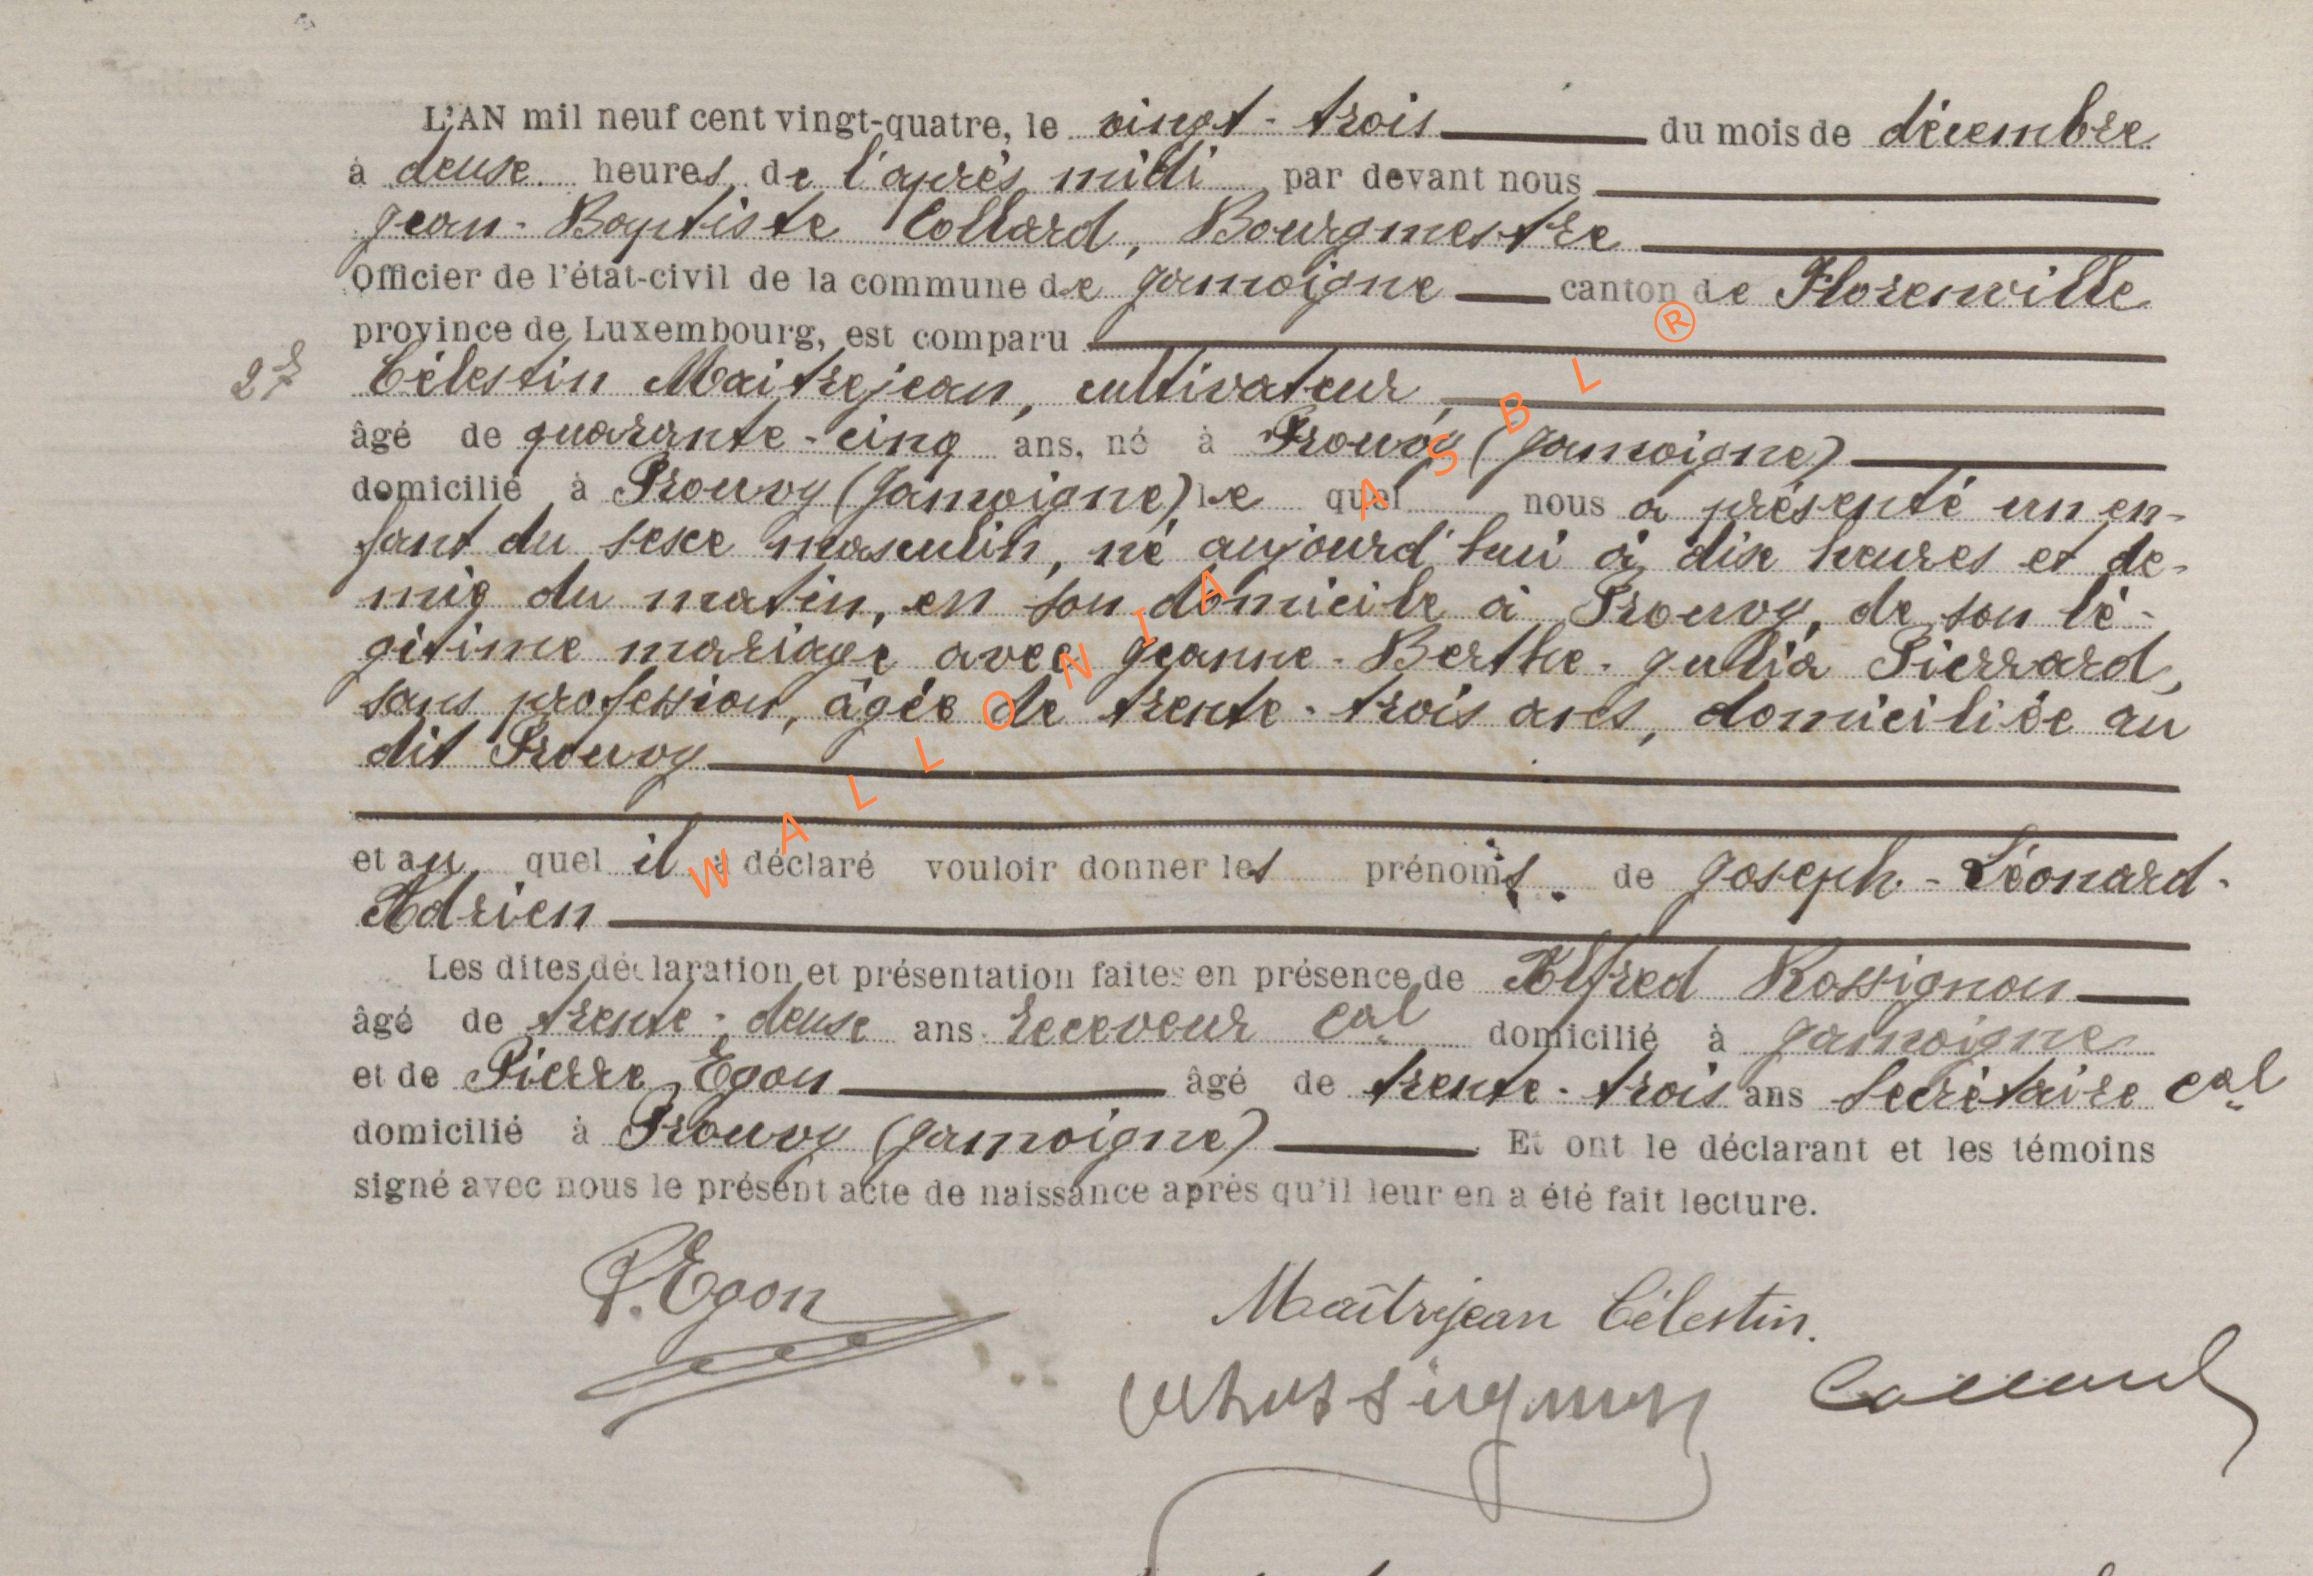 L'AN mil neuf cent vingt-quatre, le vingt-trois du mois de décembre
à deuxe heures de l'après midi par devant nous
Jean-Baptiste Collard, Bourgmestre
Officier de l'état-civil de la commune de Jamoigne canton de Florenville
province de Luxembourg, est comparu
27 Célestin Maitrejean, cultivateur,
âgé de quarante-cinq ans, né à Prouvy (Jamoigne)
domicilié à Prouvy (Jamoigne) le quel nous a présenté un en-
fant du sexe masculin, né aujourd'hui à dix heures et de-
mie du matin, en son domicile à Prouvy, de son lé-
gitime mariage avec Jeanne-Berthe-Julia Pierrard,
sans profession, âgée de trente-trois ans, domiciliée au
dit Prouvy
et au quel il a déclaré vouloir donner les prénoms de Joseph-Léonard-
Adrien
Les dites déclaration et présentation faites en présence de Alfred Rossignon
âgé de trente-deux ans receveur cal domicilié à Jamoigne
et de Pierre Egon âgé de trente-trois ans secrétaire cal
domicilié à Prouvy (Jamoigne) Et ont le déclarant et les témoins
signé avec nous le présent acte de naissance après qu'il leur en a été fait lecture.
P. Egon
Maîtrejean Célestin.
Rossignon Collard
WALLONIA ASBL ®